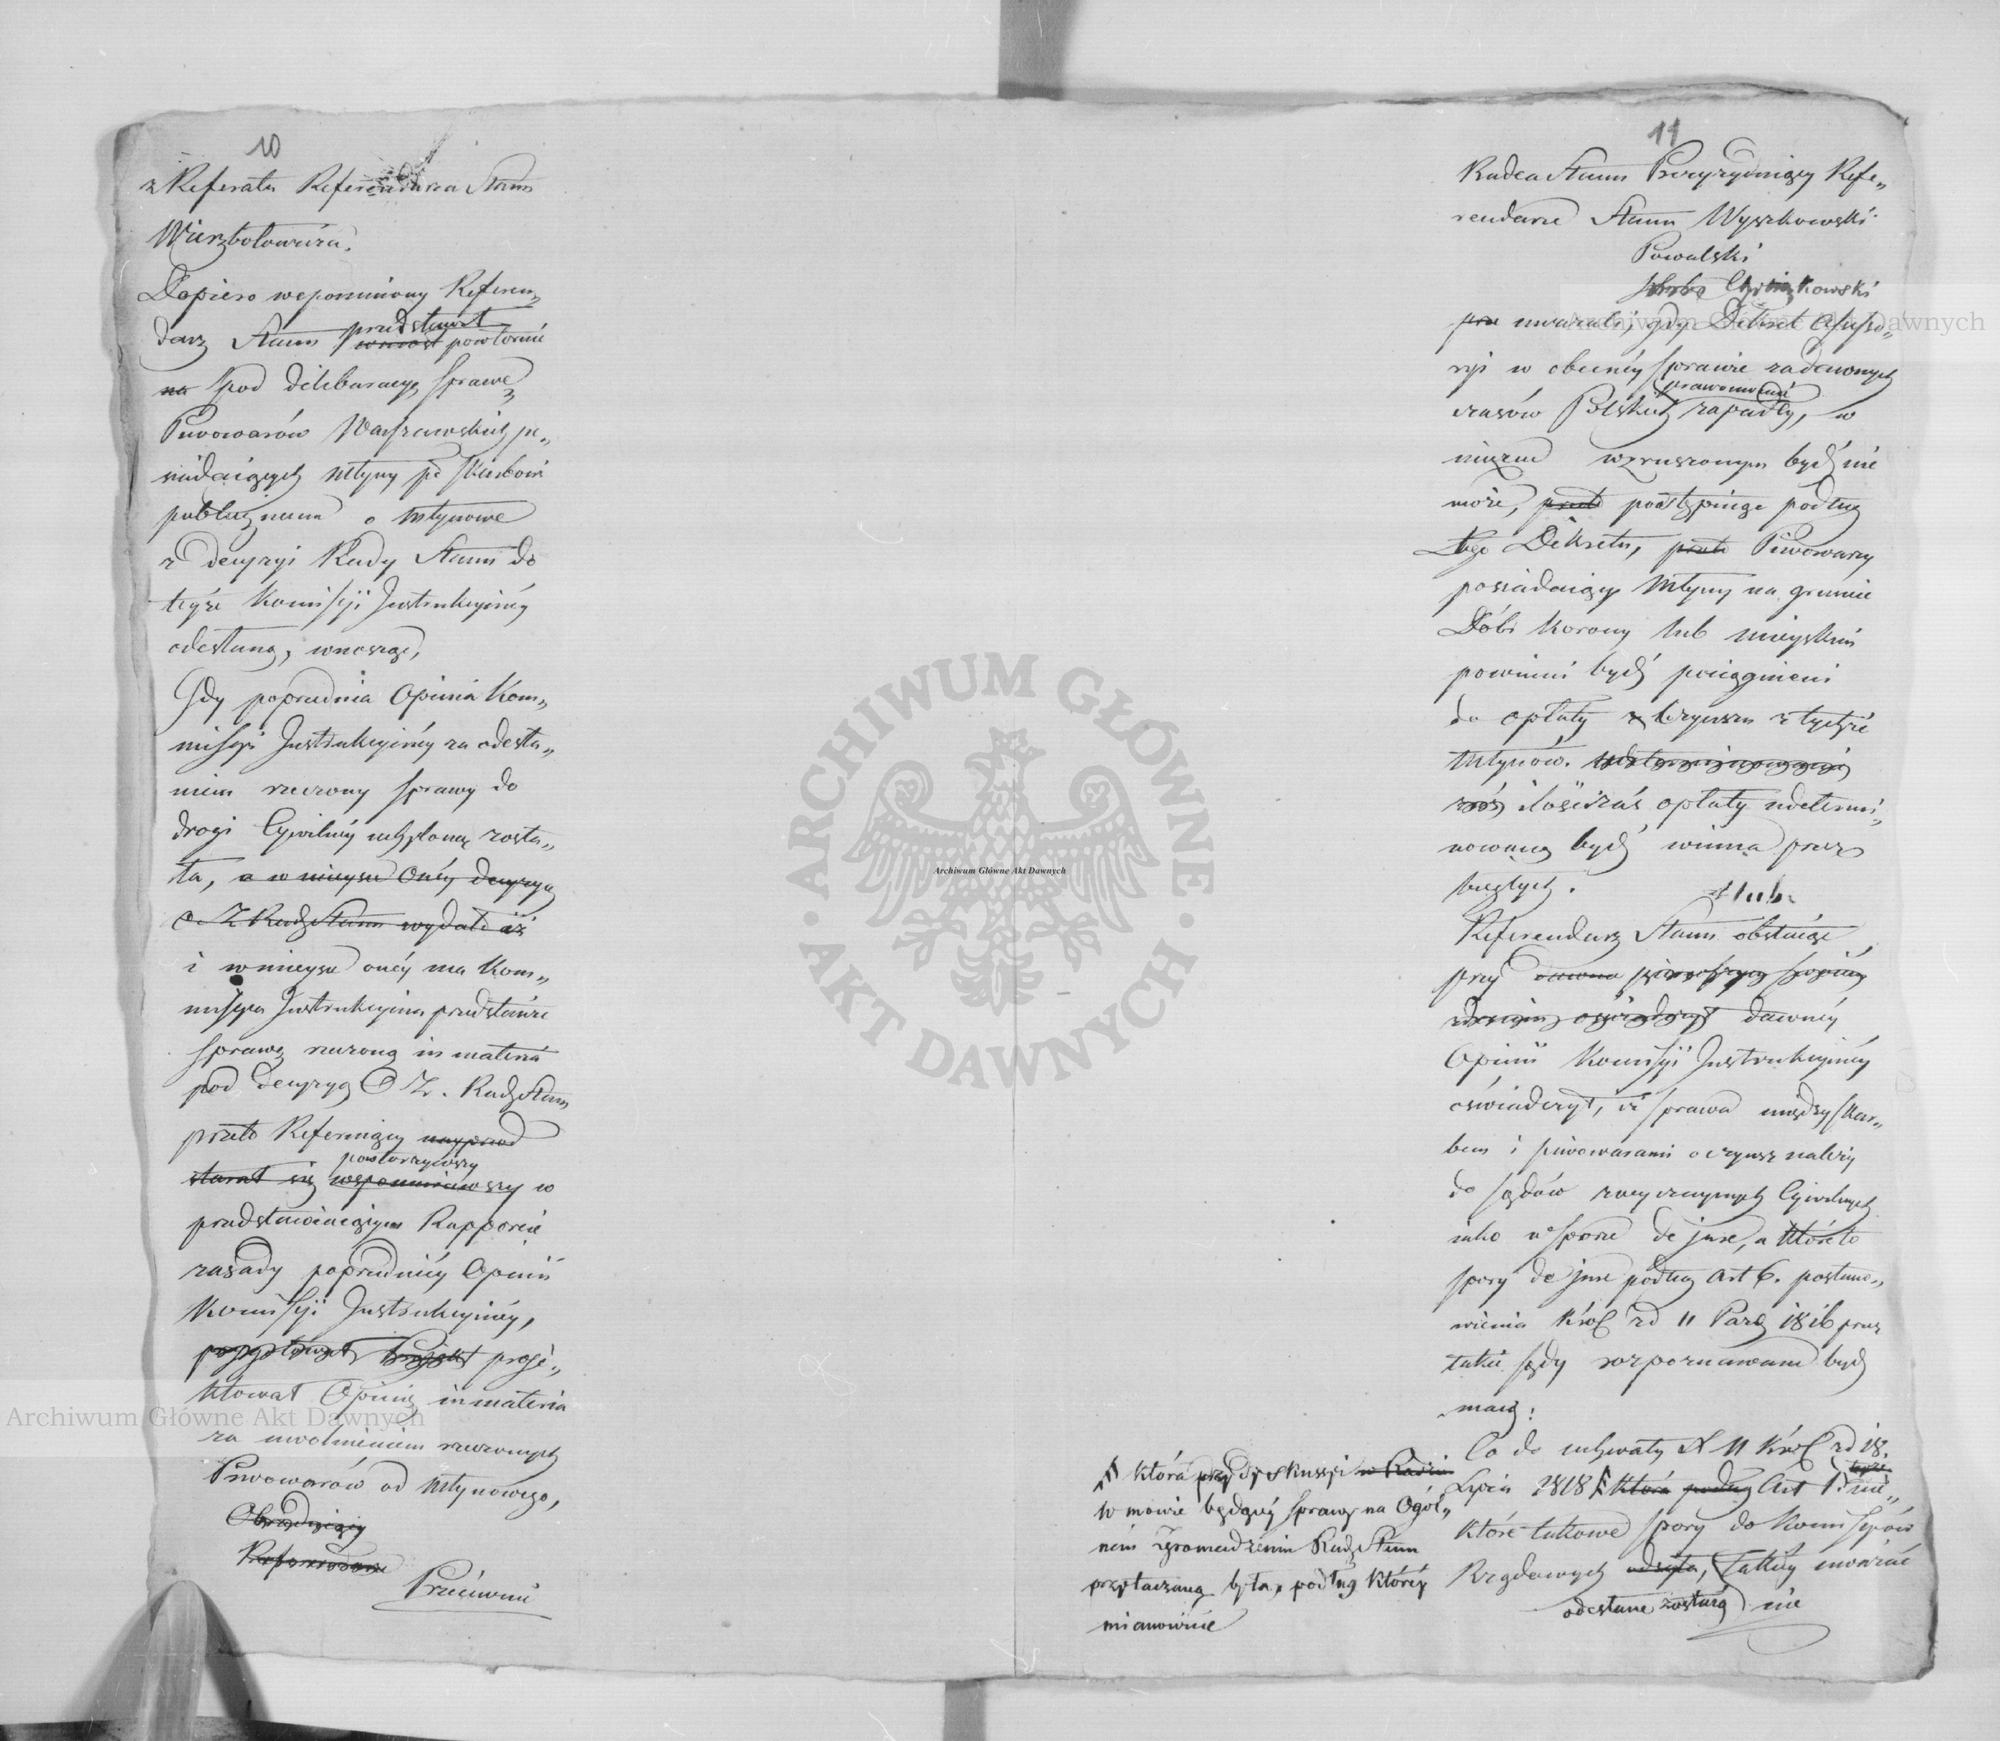 10
z Referatu Referendarza Stanu
Wierzbołowicza.
Dopiero wspomniony Referen„
darz Stanu przedstawił
wniosł powtórnie
na pod deliberacyą Sprawę
Piwowarów Warszawskich po„
siadaiących młyny ze Skarbem
publicznem o młynowe
z decyzyi Rady Stanu do
teyże Kommissyi Instrukcyinéy
odesłaną, wnosząc,
Gdy poprzednia Opinia Kom„
missyi Instrukcyinéy za odesła„
niem rzeczony sprawy do
drogi Cywilnéy uchyloną zosta„
ła, a w mieysce onéy decyzyą
O. Z Rady Stanu wydała iż
i w mieysce onéy ma Kom„
missya Instrukcyina przedstawić
sprawę rzeczoną in materia
pod decyzyą O Z. Rady Stanu
przeto Referuiący naprzod
starał się wspomniawszy w
powtorzywszy
przedstawiaiącym Rapporcie
zasady poprzedniéy Opinii
Kommissyi Instrukcyinéy,
proje„
ktował Opinię in materia
za uwolnieniem rzeczonych
Piwowarów od młynowego,
Obradujący
Referendarze
Przeciwnie
11
Radca Stanu Prezyduiący Refe„
rendarze Stanu Wyszkowski
Powalski
uważali, gdy Dekret Assesso„
ryi w obecnéy sprawie za dawnych
prawomocnie
czasów Polskich zapadły, w
niczem wzruszonym bydź nie
może, przeto postępuiąc podług
tego Dekretu, przeto Piwowarzy
posiadaiący młyny na gruncie
Dóbr Korony lub mieyskim
powinni bydź pociągnieni
do opłaty z czynszu z tychże
młynów.
zaś ilość zaś opłaty udetermi„
nowaną bydź winna przez
biegłych.
Referendarz Stanu obstaiąc
przy dawnéy
Opinii Kommissyi Instrukcyinéy
oświadczył, iż sprawa między Skar„
bem i piwowarami o czynsz należy
do sądów zwyczaynych Cywilnych
iako w sporze de jure, a któréto
spory de jure podług Art 6. postano„
wienia Król. zd 11 Paźdz 1816 przez
takie sądy rozpoznawane bydź
maią:
Co do uchwały X N Król zd 18.
Lipca 1818 która podług Art 1.
które takowe spory do Kommissyów
Rządowych odsyła, takiéy uważać
odesłane zostaią nie
która przy dyskussyi w Radzie
w mowie będącéy sprawy na Ogól„
ném Zgromadzeniu Rady Stanu
przytaczaną była, podług któréy
mianowicie
Archiwum Główne Akt Dawnych
Archiwum Główne Akt Dawnych
ARCHIWUM GŁÓWNE · AKT DAWNYCH ·
Archiwum Główne Akt Dawnych